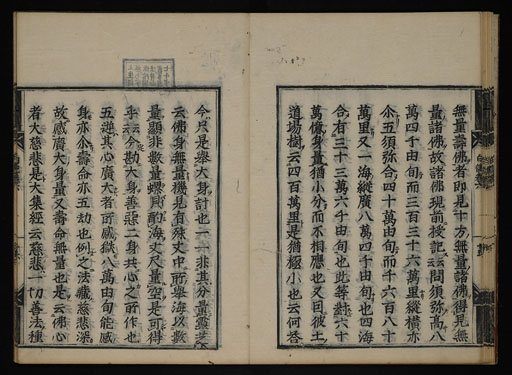 無量壽佛者即見十方無量諸佛得見無
量諸佛故諸佛現前授記云問須弥高八
萬四千由旬而三百三十六萬里縱横亦
尒五須弥合四十萬由旬而千六百八十
萬里又一海縱廣八萬四千由旬也四海
合有三十三萬六千由旬也此等對六十
萬億身量猶小分而不相應也又同彼土
道場樹云四百萬里是猶極小也云何答
今只是舉大身計也一一非其分量靈芝
云佛身無量機見有殊丈中所舉海以數
量顯非数量螺貝酌海丈尺量空是可得
乎云云今勘大身善惡二身共心之所作也
五逆其心廣大者可感獄八萬由旬能感
身亦尒壽命亦五劫也例之法藏慈悲深
故感廣大身量又壽命無量也是云佛心
者大慈悲是大集經云慈悲一切善法種